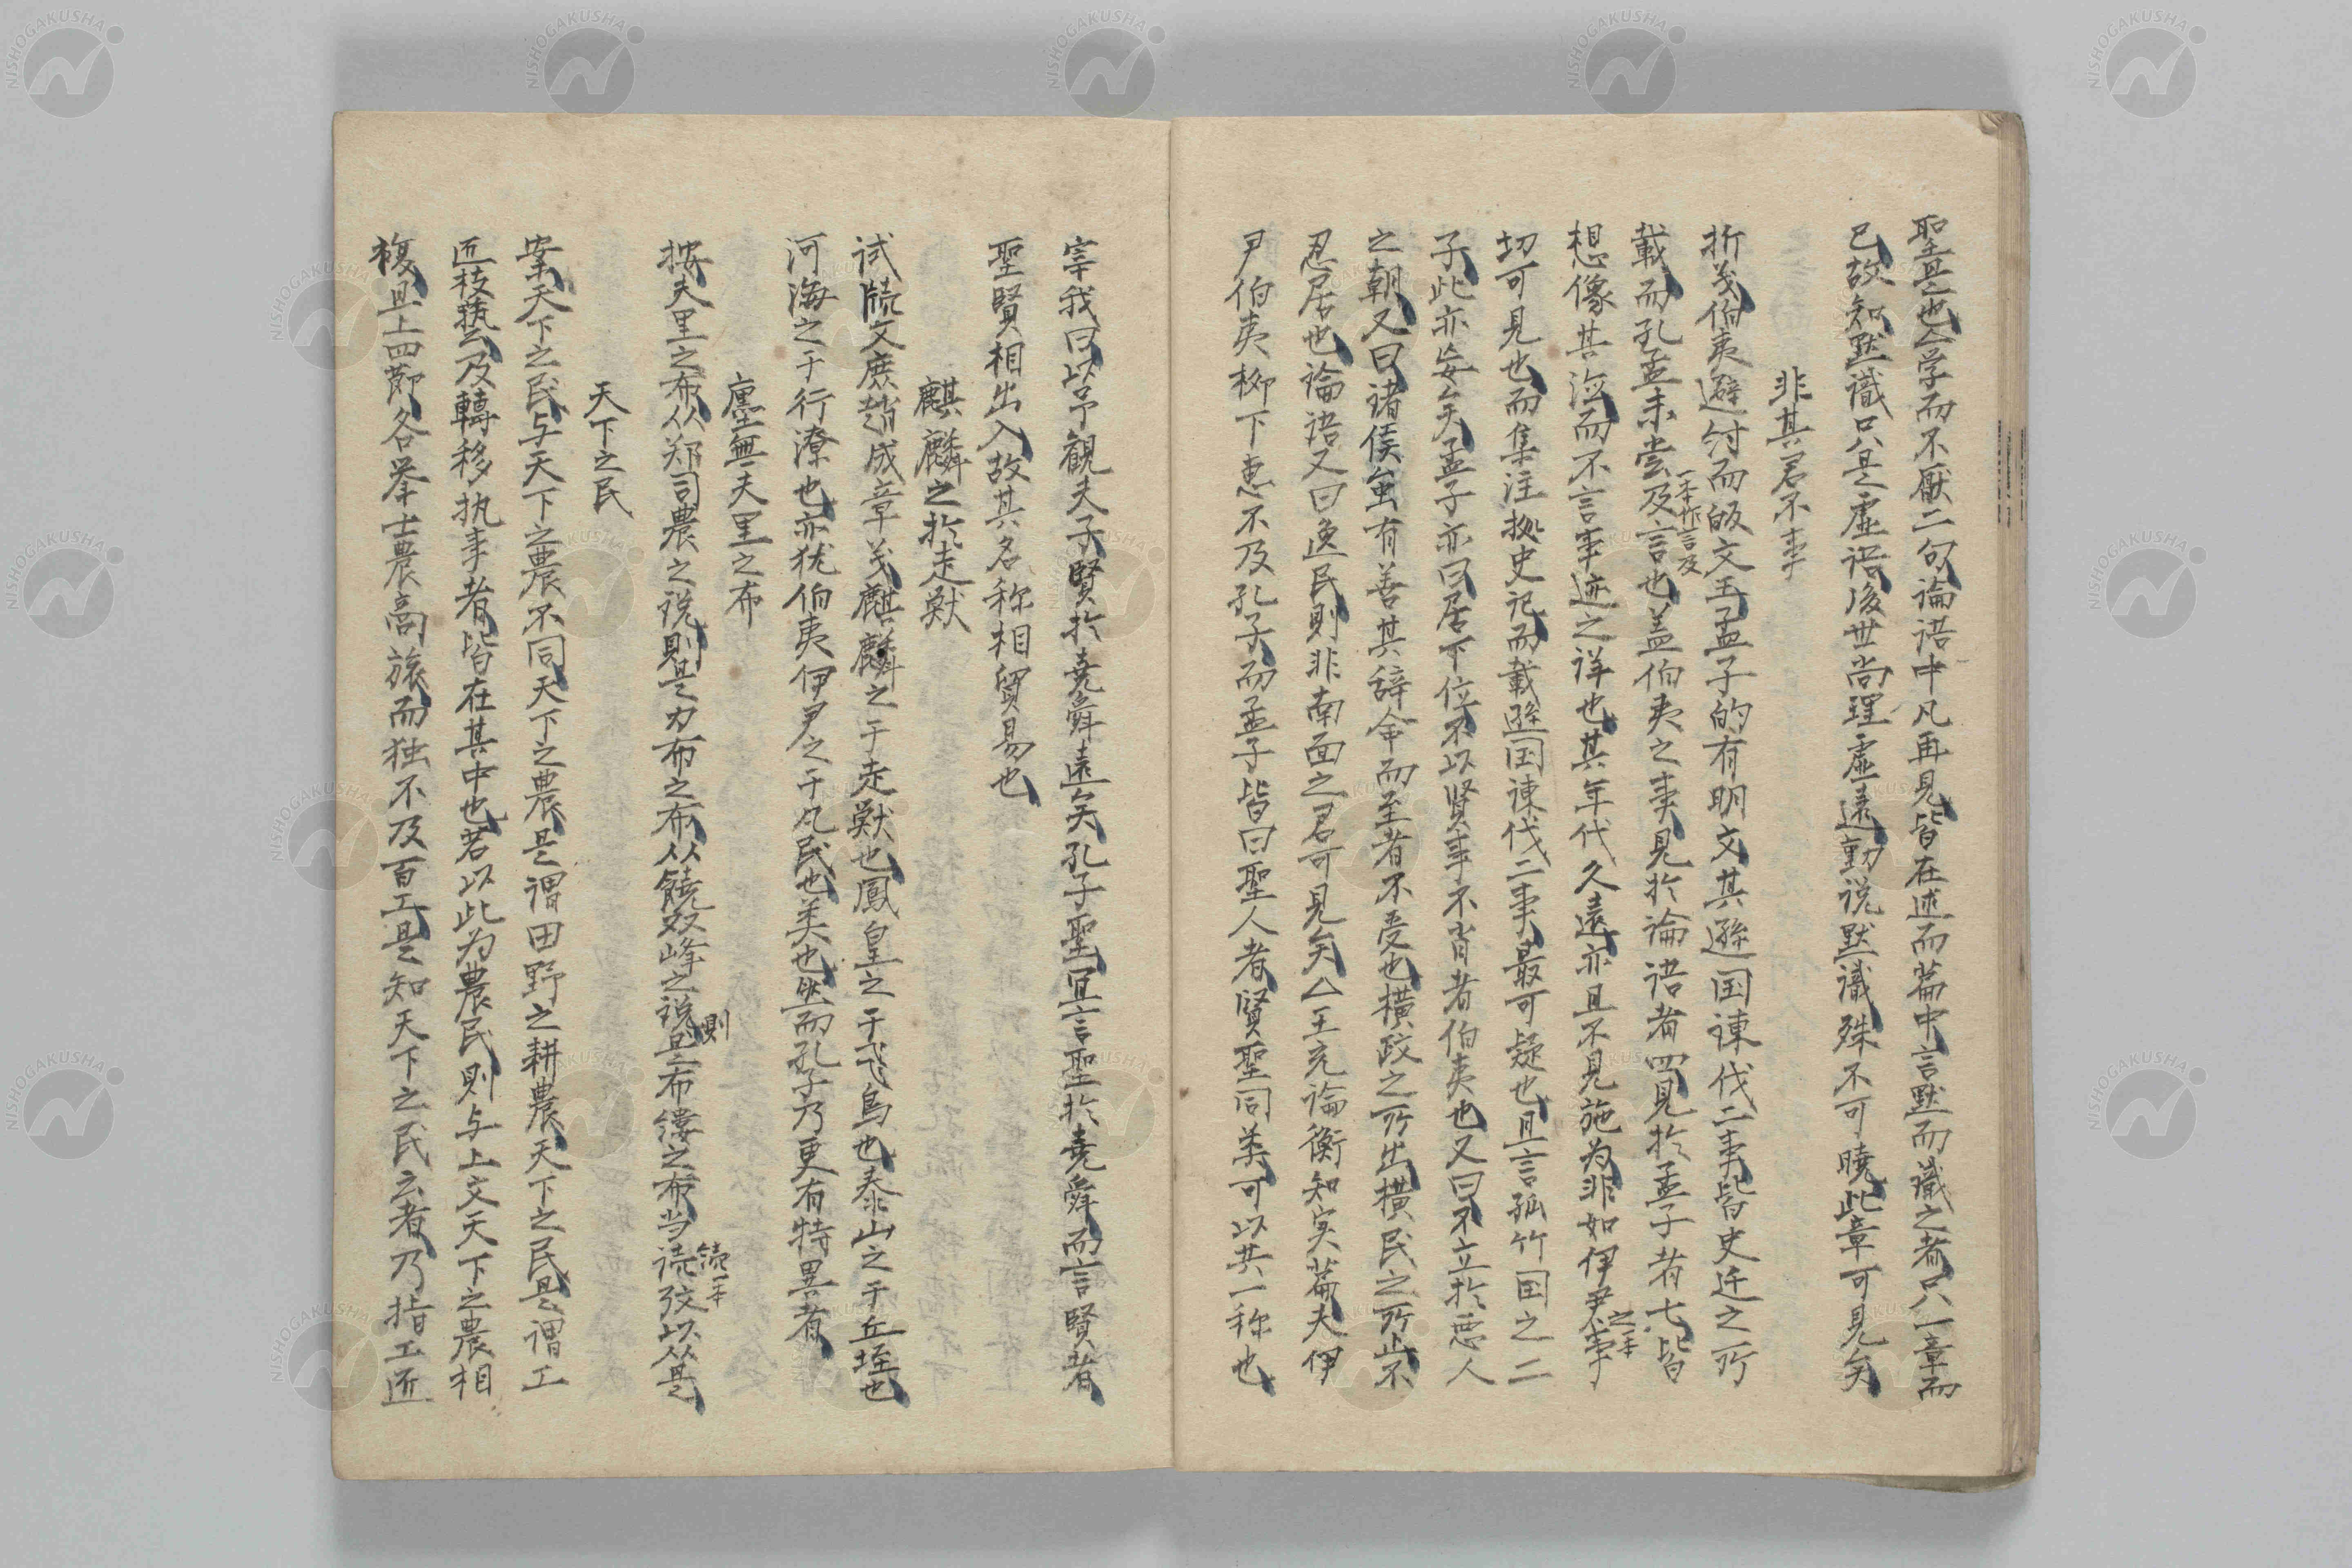 聖是也△学而不厭二句論語中凡再見皆在述而篇中言默而識之者只一章而
已故知默識只是虚語後世尚理虚遠動説默識殊不可曉此章可見矣
非其君不事
折義伯夷避紂而皈文王孟子的有明文其遜国諌伐二事皆史迁之所
載而孔孟未嘗及言也盖伯夷之事見於論語者四見於孟子者七皆
一本作言及
想像其泣而不言事迹之詳也其年代久遠亦且不見施为非如伊尹事
之一本
切可見也而集注拠史記而載遜国諌伐二事最可疑也且言孤竹国之二
子此亦妄矣孟子亦曰居下位不以賢事不肖者伯夷也又曰不立於悪人
之朝又曰诸侯虽有善其辞命而至者不受也横政之所出横民之所止不
忍居也論語又曰逸民則非南面之君可見矣△王充論衡知実篇夫伊
尹伯夷柳下惠不及孔子而孟子皆曰聖人者賢聖同类可以共一称也
宰我曰以予観夫子賢於尭舜遠矣孔子聖宜言聖於尭舜而言賢者
聖賢相出入故其名称相貿易也
麒麟之於走獣
试牍文庶趙成章義麒麟之于走獣也鳳皇之于飛鳥也泰山之于丘垤也
河海之于行潦也亦犹伯夷伊尹之于凡民也类也然而孔子乃更有特異者
廛無夫里之布
按夫里之布从郑司農之说則是力布之布从饒双峰之説是布縷之布当读攷以从是
則
統一本
天下之民
案天下之民与天下之農不同天下之農是謂田野之耕農天下之民是謂工
匠技藝及轉移执事者皆在其中也若以此为農民則与上文天下之農相
複且上四節各举士農商旅而独不及百工是知天下之民云者乃指工匠
NISHOGAKUSHA